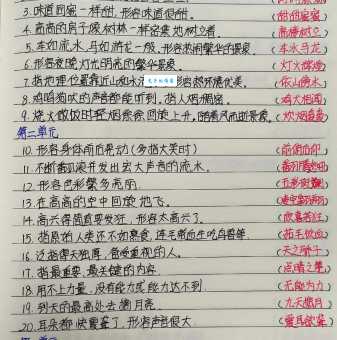 3.味道回蜜一样甜,形容味道很甜。(甜甜蜜蜜)
4.高高的房子像树林一样密集地树立着。(高楼林立)
5.车如流水,马如游龙一般,形容热闹繁华的景象。(车水马龙)
6.形容夜晚灯光明亮的繁华景象。(灯火辉煌)
7.指地理位置靠近山和水 形容自然环境优美。(依山傍水)
8.鸡鸣狗吠的声音都能听到,指人烟稠密。(鸡犬相闻)
9.烧火做饭时轻烟袅袅回旋上升,随着风而逝景象。(炊烟袅袅)
第二单元
10.形容身体前后晃动(多指大笑时)(前俯后仰)
11.不断翻滚并发出宏大声音的流水。
12.形容色彩繁多亮丽。(五彩斑斓)
13.在高高的空中回旋地飞。
14.高兴得简直要发狂,形容太高兴了。(欣喜若狂)
15.指原始人类还不知熟食,连毛带血生吃鸟兽等。(茹毛饮血)
16.泛指得天独厚,备受重视的人。(天之骄子)
17.指最重要、最关键的内容。(点睛之笔)
18.用不上力量,没有能力或能力达不到(无能为力)
19.到天的最高处去摘月亮。(九天揽月)
20.耳朵都快震聋了,形容声音很大(震耳欲聋)